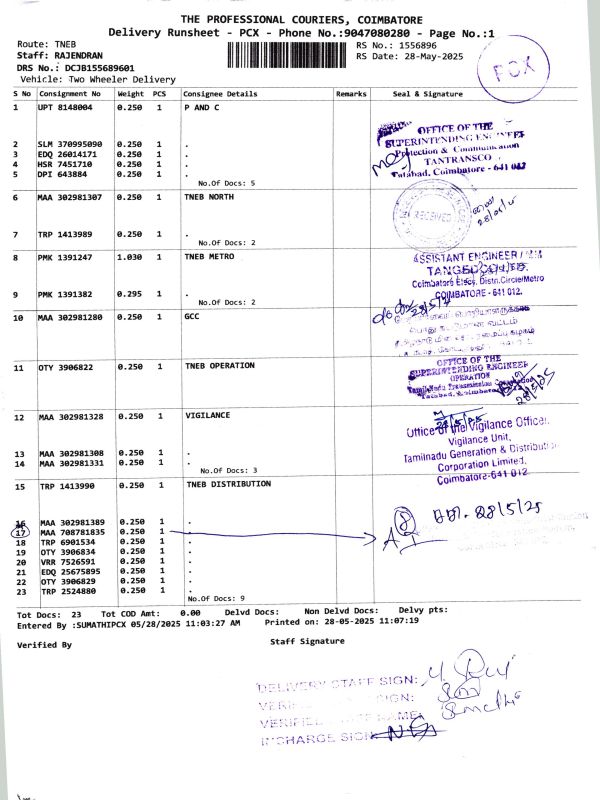 THE PROFESSIONAL COURIERS, COIMBATORE
Delivery Runsheet - PCX - Phone No.:9047080280 - Page No.:1
Route: TNEB
Staff: RAJENDRAN
DRS No.: DCJB155689601
Vehicle: Two Wheeler Delivery
RS No.: 1556896
RS Date: 28-May-2025
PCX
S No Consignment No Weight PCS Consignee Details Remarks Seal & Signature
1 UPT 8148004 0.250 1 P AND C
2 SLM 370995090 0.250 1 .
3 EDQ 26014171 0.250 1 .
4 HSR 7451710 0.250 1 .
5 DPI 643884 0.250 1 .
No.Of Docs: 5
OFFICE OF THE
SUPERINTENDING ENGINEER
Protection & Communication
TANTRANSCO
Tatabad, Coimbatore - 641 012
6 MAA 302981307 0.250 1 TNEB NORTH
7 TRP 1413989 0.250 1 .
No.Of Docs: 2
RECEIVED
8 PMK 1391247 1.030 1 TNEB METRO
9 PMK 1391382 0.295 1 .
No.Of Docs: 2
ASSISTANT ENGINEER
Coimbatore Elecy. Distn.Circle/Metro
COIMBATORE - 641 012.
10 MAA 302981280 0.250 1 GCC
11 OTY 3906822 0.250 1 TNEB OPERATION
OFFICE OF THE
SUPERINTENDING ENGINEER
OPERATION
TamilNadu Transmission Corporation
Tatabad, Coimbatore
28/5/25
12 MAA 302981328 0.250 1 VIGILANCE
13 MAA 302981308 0.250 1 .
14 MAA 302981331 0.250 1 .
No.Of Docs: 3
28/5/25
Office of the Vigilance Officer,
Vigilance Unit,
Tamilnadu Generation & Distribution
Corporation Limited,
Coimbatore-641 012
15 TRP 1413990 0.250 1 TNEB DISTRIBUTION
16 MAA 302981389 0.250 1 .
17 MAA 708781835 0.250 1 .
18 TRP 6901534 0.250 1 .
19 OTY 3906834 0.250 1 .
20 VRR 7526591 0.250 1 .
21 EDQ 25675895 0.250 1 .
22 OTY 3906829 0.250 1 .
23 TRP 2524880 0.250 1 .
No.Of Docs: 9
8
28/5/25
Tot Docs: 23 Tot COD Amt: 0.00 Delvd Docs: Non Delvd Docs: Delvy pts:
Entered By :SUMATHIPCX 05/28/2025 11:03:27 AM Printed on: 28-05-2025 11:07:19
Verified By
Staff Signature
DELIVERY STAFF SIGN:
SIGN:
NAME:
INCHARGE SIGN: